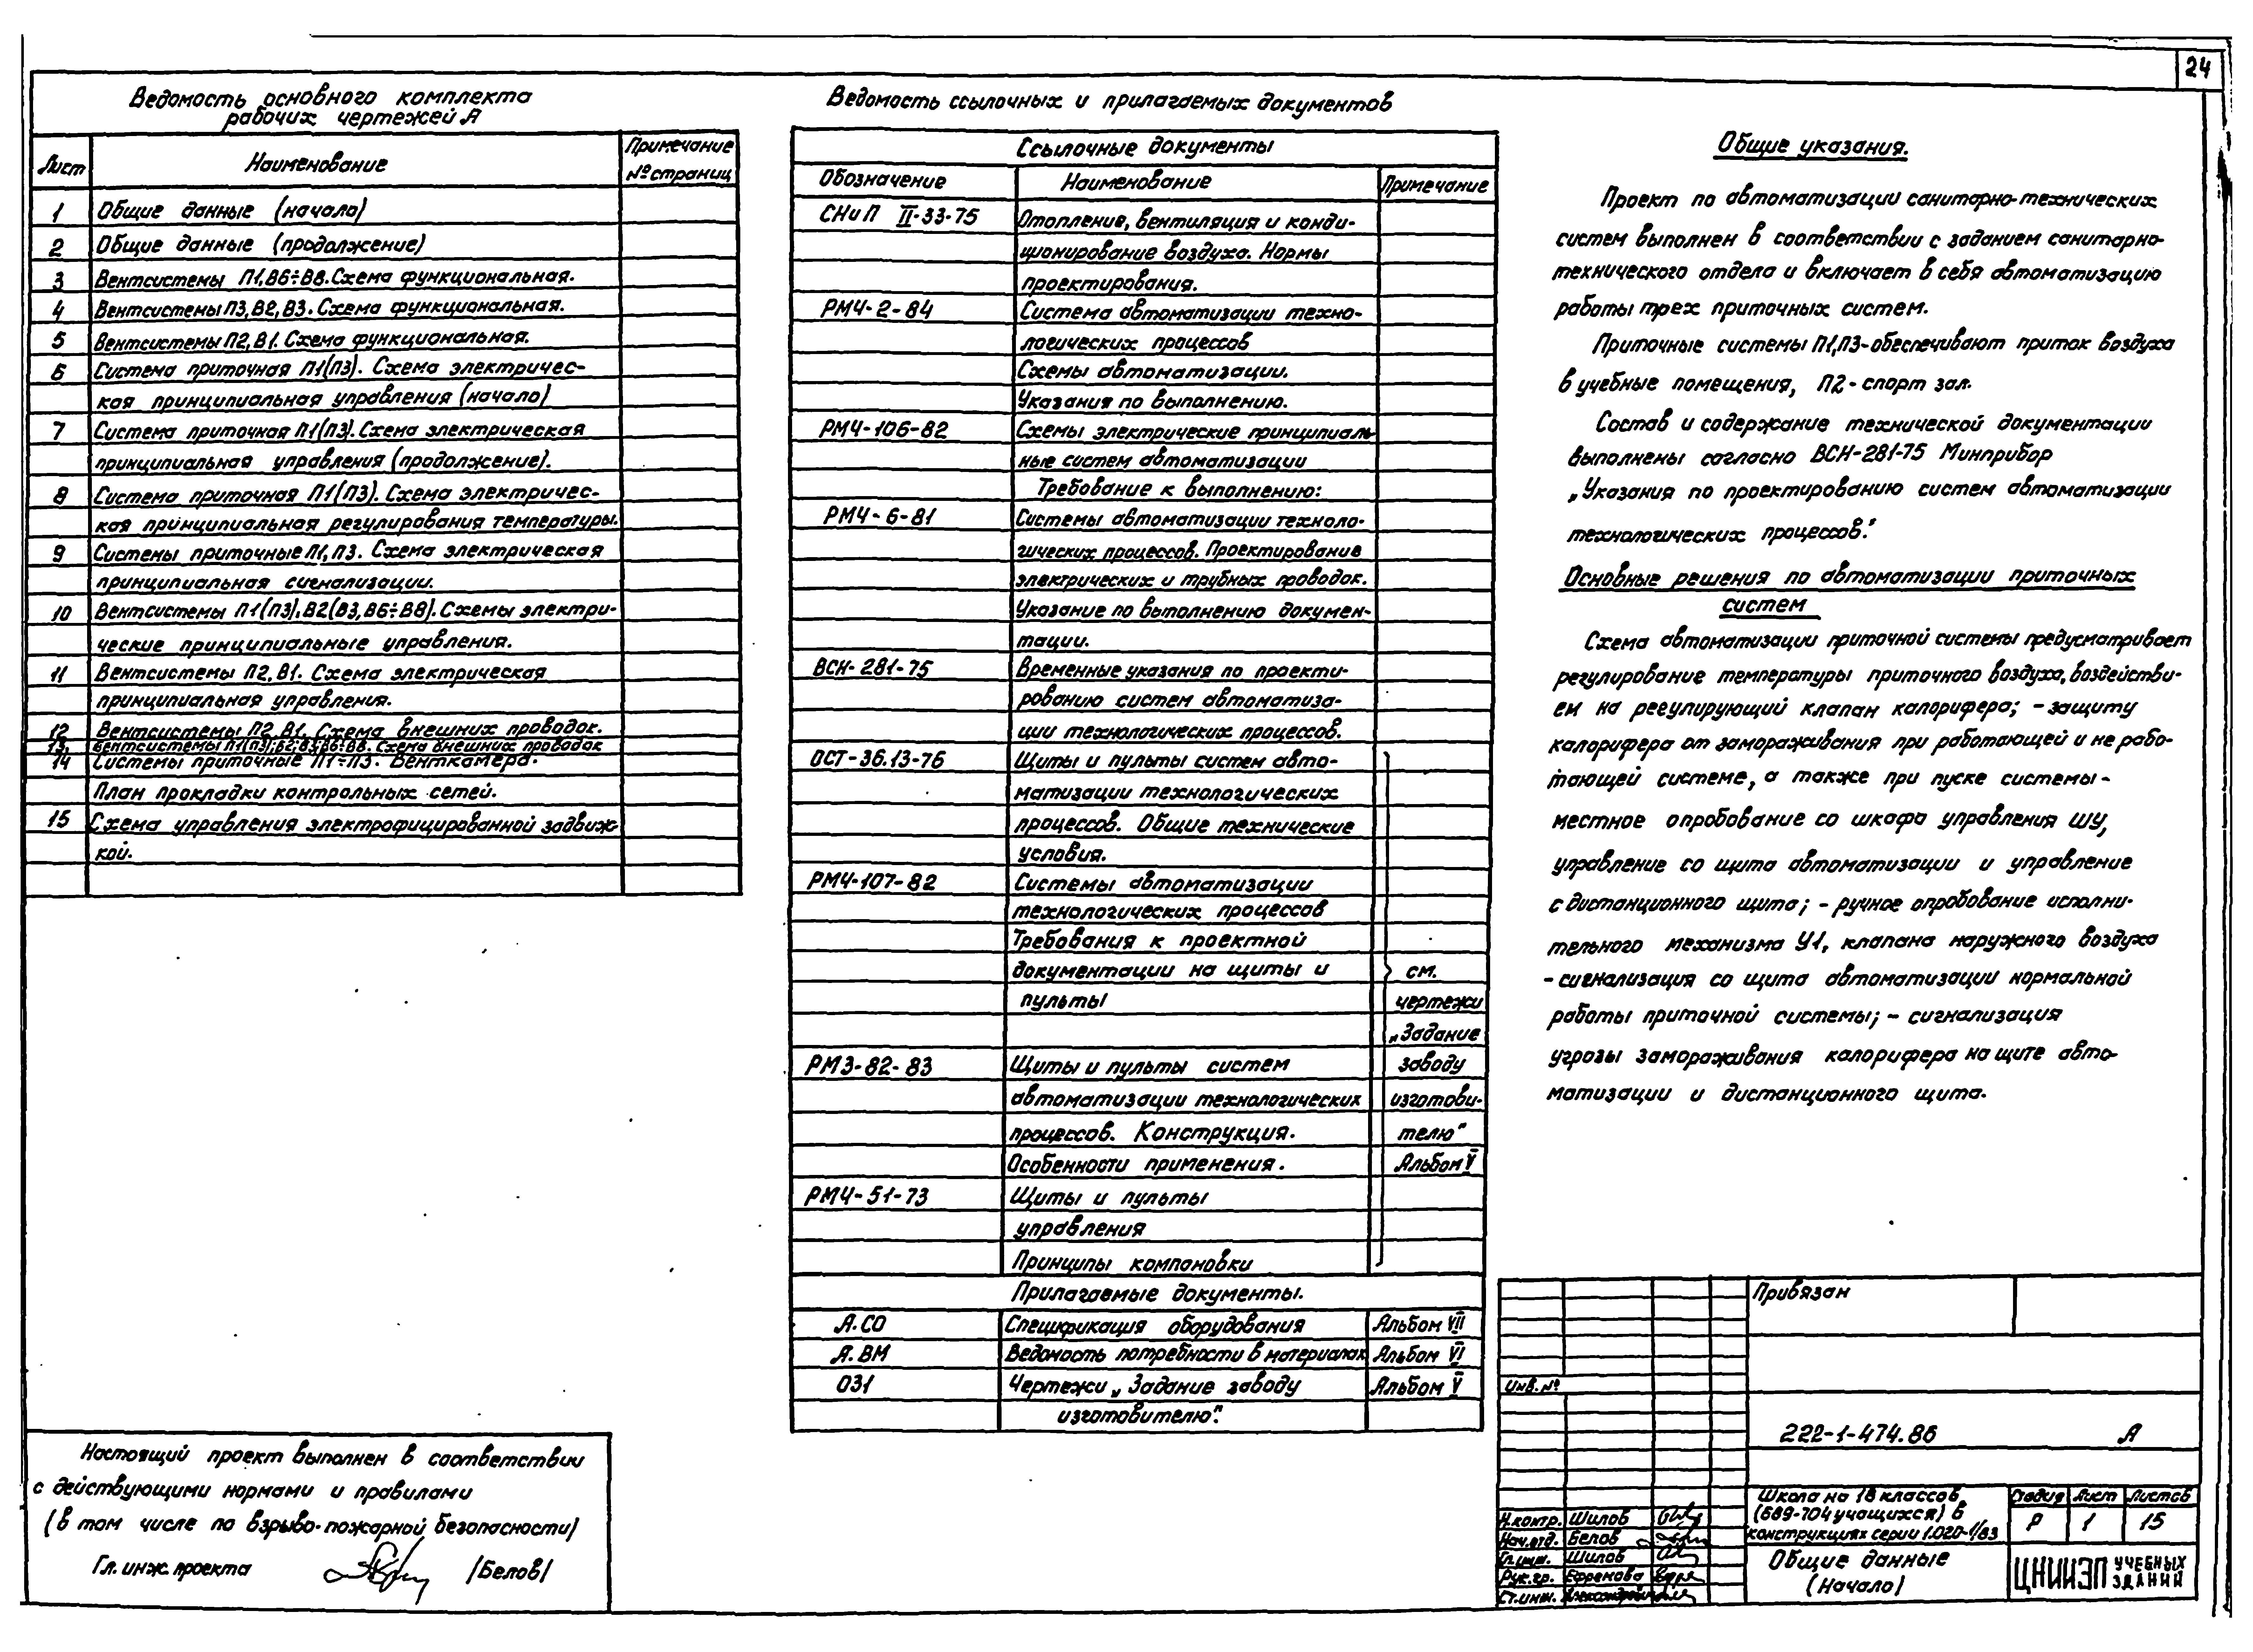 24
Ведомость основного комплекта
рабочих чертежей А
Лист Наименование Примечание
№ страниц
1 Общие данные (начало)
2 Общие данные (продолжение)
3 Вентсистемы П1,В6÷В8. Схема функциональная.
4 Вентсистемы П3, В2, В3. Схема функциональная.
5 Вентсистемы П2, В1. Схема функциональная.
6 Система приточная П1(П3). Схема электричес-
кая принципиальная управления (начало)
7 Система приточная П1(П3). Схема электрическая
принципиальная управления (продолжение).
8 Система приточная П1(П3). Схема электричес-
кая принципиальная регулирования температуры.
9 Системы приточные П1, П3. Схема электрическая
принципиальная сигнализации.
10 Вентсистемы П1(П3), В2(В3, В6÷В8). Схемы электри-
ческие принципиальные управления.
11 Вентсистемы П2, В1. Схема электрическая
принципиальная управления.
12 Вентсистемы П2, В1. Схема внешних проводок.
13 Вентсистемы П1(П3); В2; В3; В6÷В8. Схема внешних проводок
14 Системы приточные П1÷П3. Венткамера.
План прокладки контрольных сетей.
15 Схема управления электрофицированной задвиж-
кой.
Настоящий проект выполнен в соответствии
с действующими нормами и правилами
(в том числе по взрыво-пожарной безопасности)
Гл. инж. проекта /Белов/
Ведомость ссылочных и прилагаемых документов
Ссылочные документы
Обозначение Наименование Примечание
СНиП II-33-75 Отопление, вентиляция и конди-
ционирование воздуха. Нормы
проектирования.
РМ4-2-84 Система автоматизации техно-
логических процессов
Схемы автоматизации.
Указания по выполнению.
РМ4-106-82 Схемы электрические принципиаль-
ные систем автоматизации
Требование к выполнению:
РМ4-6-81 Системы автоматизации техноло-
гических процессов. Проектирование
электрических и трубных проводок.
Указание по выполнению докумен-
тации.
ВСН-281-75 Временные указания по проекти-
рованию систем автоматиза-
ции технологических процессов.
ОСТ-36.13-76 Щиты и пульты систем авто-
матизации технологических
процессов. Общие технические
условия.
РМ4-107-82 Системы автоматизации
технологических процессов
Требования к проектной
документации на щиты и см.
пульты чертежи
„Задание
РМ3-82-83 Щиты и пульты систем заводу
автоматизации технологических изготови-
процессов. Конструкция. телю"
Особенности применения. Альбом V
РМ4-51-73 Щиты и пульты
управления
Принципы компоновки
Прилагаемые документы.
А.СО Спецификация оборудования Альбом VII
А.ВМ Ведомость потребности в материалах Альбом VI
ОЗ1 Чертежи „Задание заводу Альбом V
изготовителю".
Общие указания.
Проект по автоматизации саниторно-технических
систем выполнен в соответствии с заданием санитарно-
технического отдела и включает в себя автоматизацию
работы трех приточных систем.
Приточные системы П1,П3-обеспечивают приток воздуха
в учебные помещения, П2-спорт зал.
Состав и содержание технической документации
выполнены согласно ВСН-281-75 Минприбор
„Указания по проектированию систем автоматизации
технологических процессов."
Основные решения по автоматизации приточных
систем
Схема автоматизации приточной системы предусматривает
регулирование температуры приточного воздуха, воздействи-
ем на регулирующий клапан калорифера; - защиту
калорифера от замораживания при работающей и не рабо-
тающей системе, а также при пуске системы-
местное опробование со шкафа управления ШУ,
управление со щита автоматизации и управление
с дистанционного щита; - ручное опробование исполни-
тельного механизма У1, клапана наружного воздуха
- сигнализация со щита автоматизации нормальной
работы приточной системы; - сигнализация
угрозы замораживания калорифера на щите авто-
матизации и дистанционного щита.
Привязан
Инв. №
222-1-474.86 А
Школа на 18 классов
(689-704 учащихся) в
конструкциях серии 1.020-1/83
Стадия Лист Листов
Р 1 15
Н.контр. Шилов
Нач.отд. Белов
Гл.инж. Шилов
Рук.гр. Ефремова
Ст.инж.
Общие данные
(Начало)
ЦНИИЭП УЧЕБНЫХ
ЗДАНИЙ